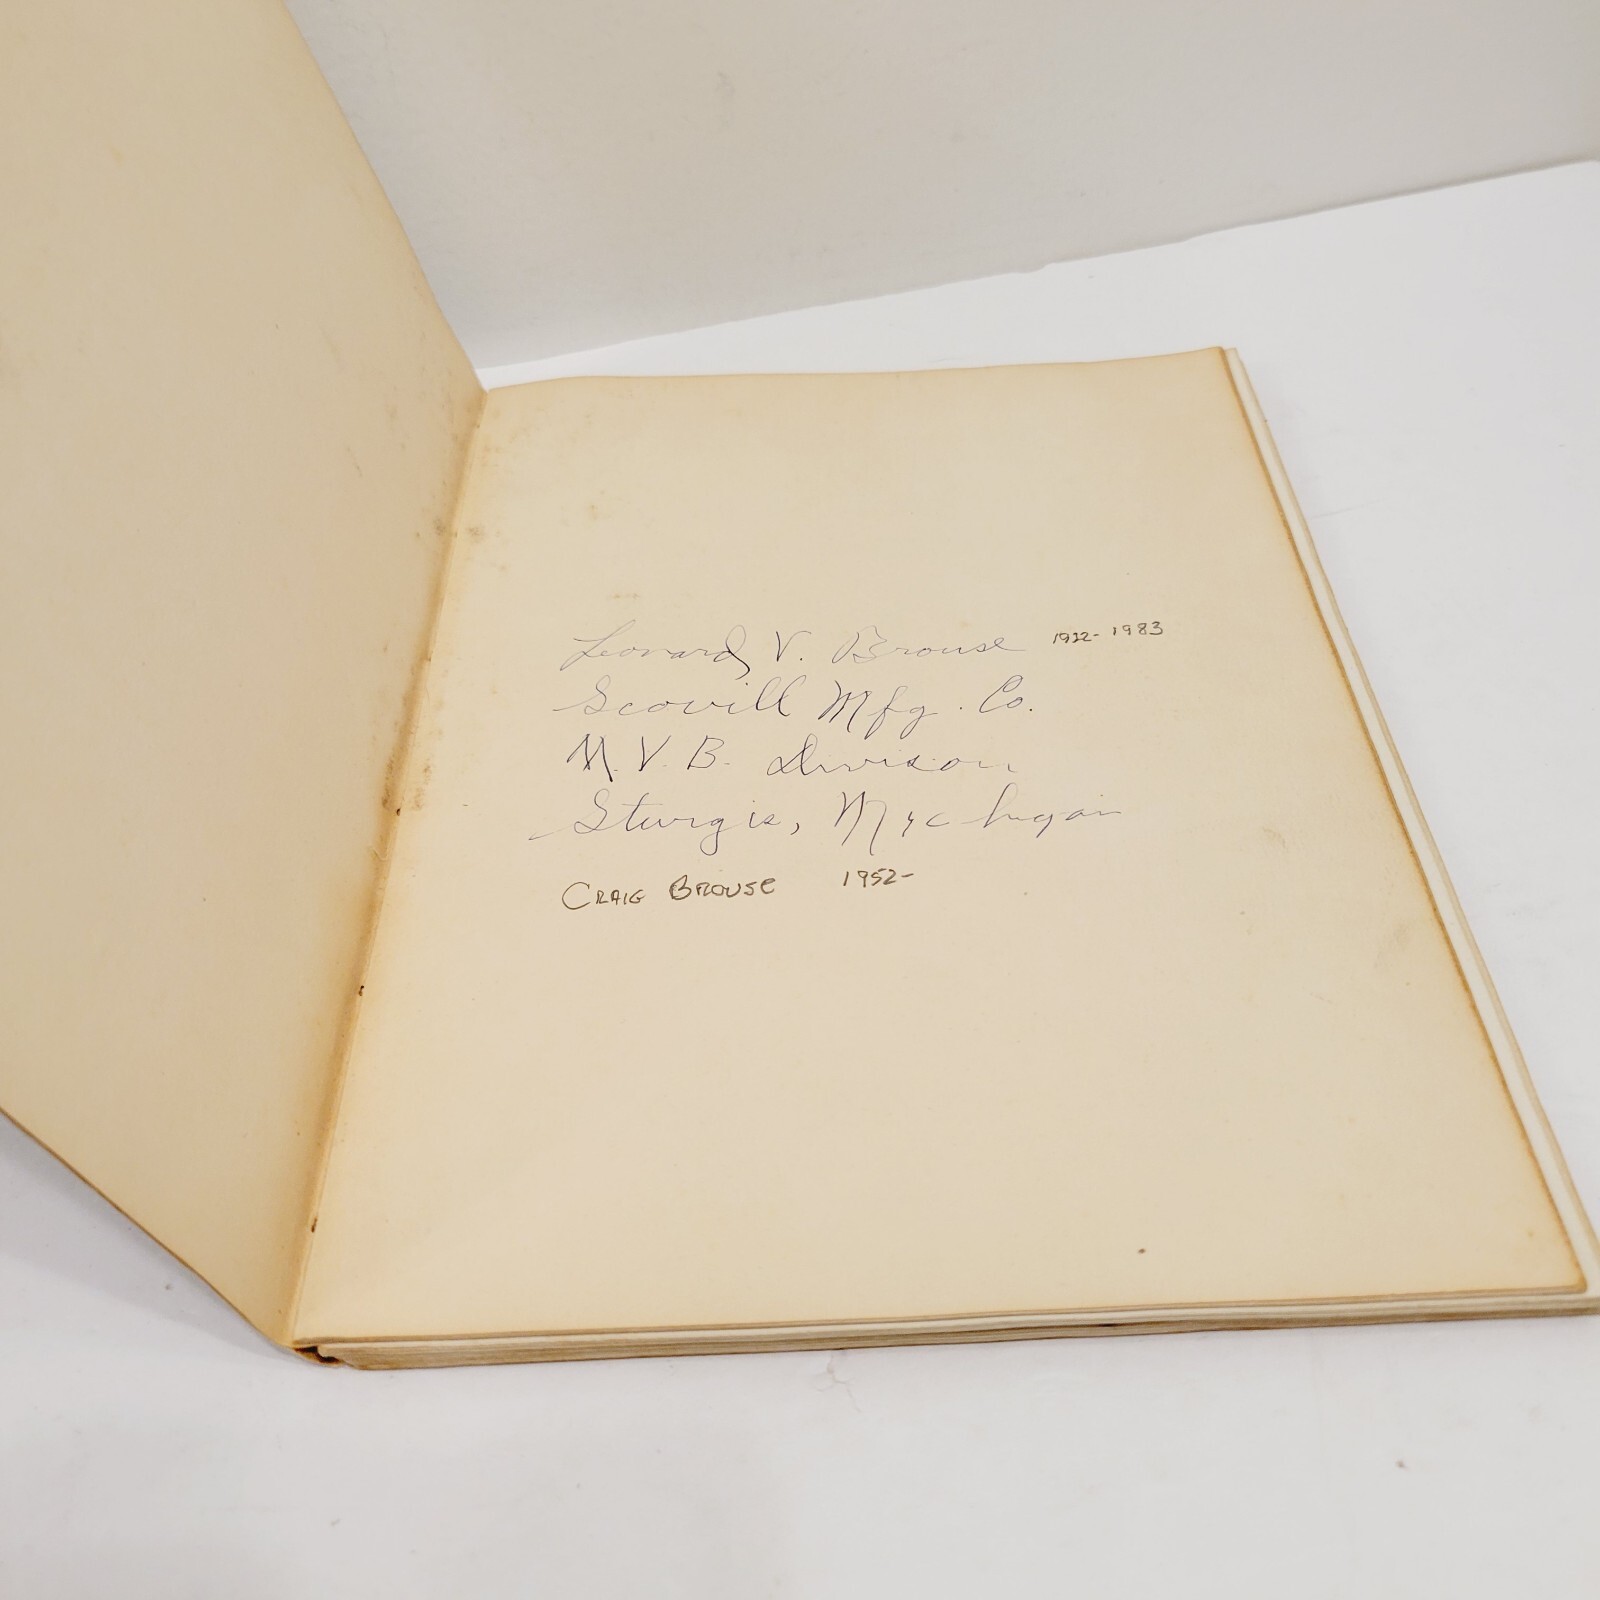 Leonard V. Brouse 1922-1983
Scovill Mfg. Co.
N. V. B. Division
Sturgis, Michigan
CRAIG BROUSE 1952-